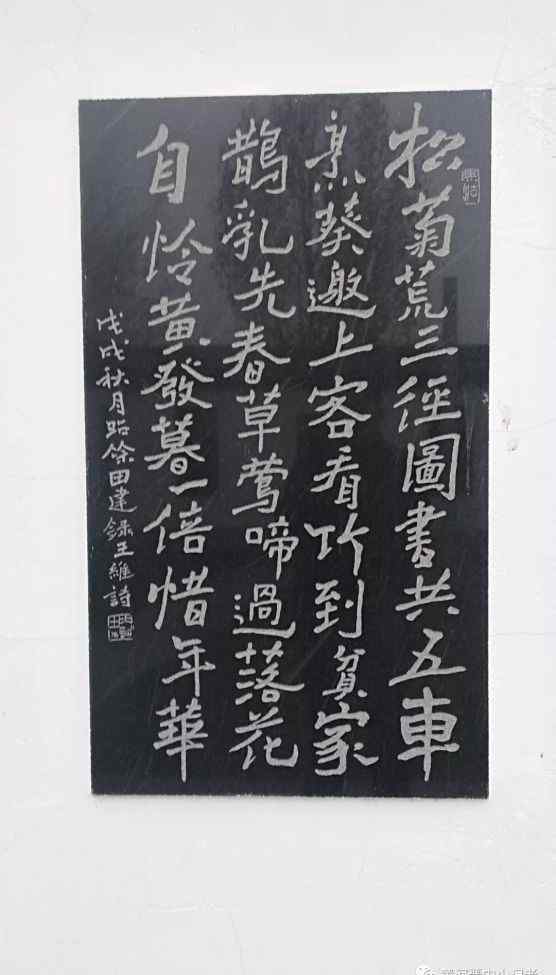 松菊荒三徑圖書共五車
烹葵邀上客看竹到貧家
鵲乳先春草鶯啼過落花
自怜黃發暮一倍惜年華
戊戌秋月跆馀田建録王維詩